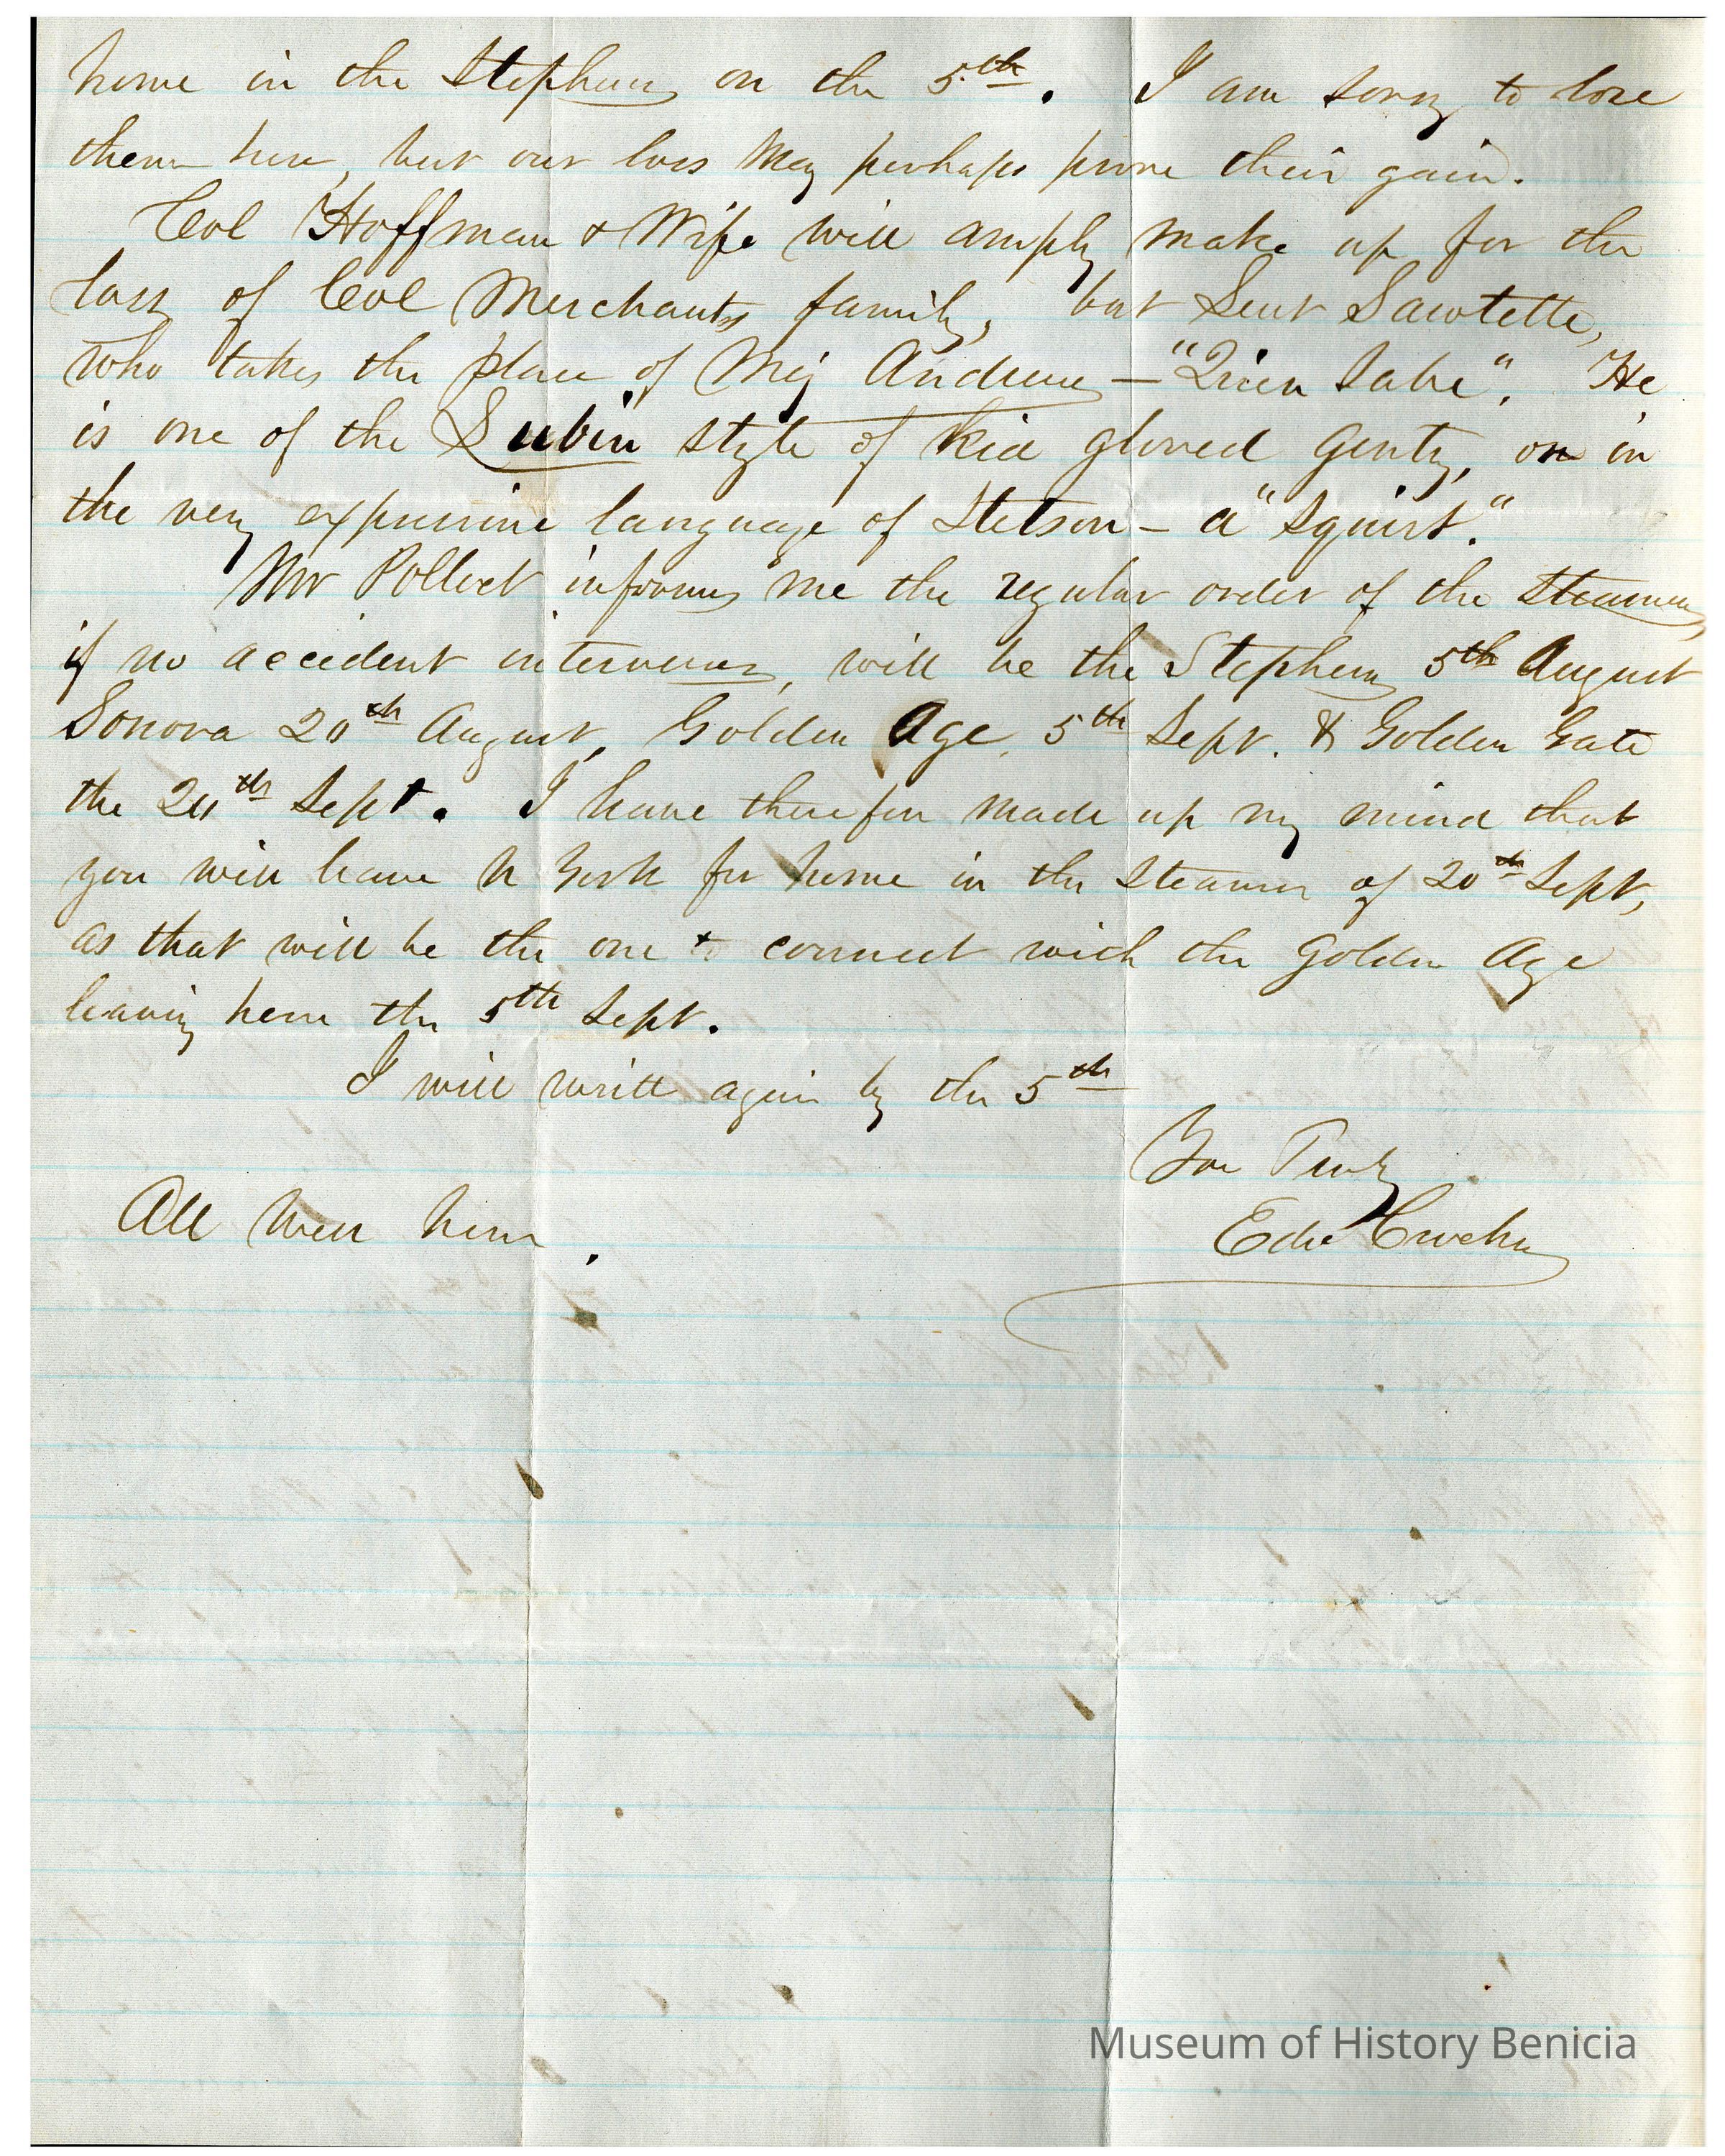 home in the Stephens on the 5th. I am sorry to lose
them here, but our loss may perhaps prove their gain.
Col Hoffman & Wife will amply make up for the
loss of Col Merchants family, but Lieut Sawtelle,
who takes the place of Maj Andrews — "Quien Sabe". He
is one of the Lubin style of Kid gloved gentry, or in
the very expressive language of Stetson — a "squirt."
Mr Pollock informs me the regular order of the Steamers,
if no accident intervenes, will be the Stephens 5th August
Sonora 20th August, Golden Age 5th Sept. & Golden Gate
the 20th Sept. I have therefore made up my mind that
you will leave N York for home in the Steamer of 20th Sept,
as that will be the one to connect with the Golden Age
leaving here the 5th Sept.
I will write again by the 5th
Yrs Truly
All well here.
Museum of History Benicia